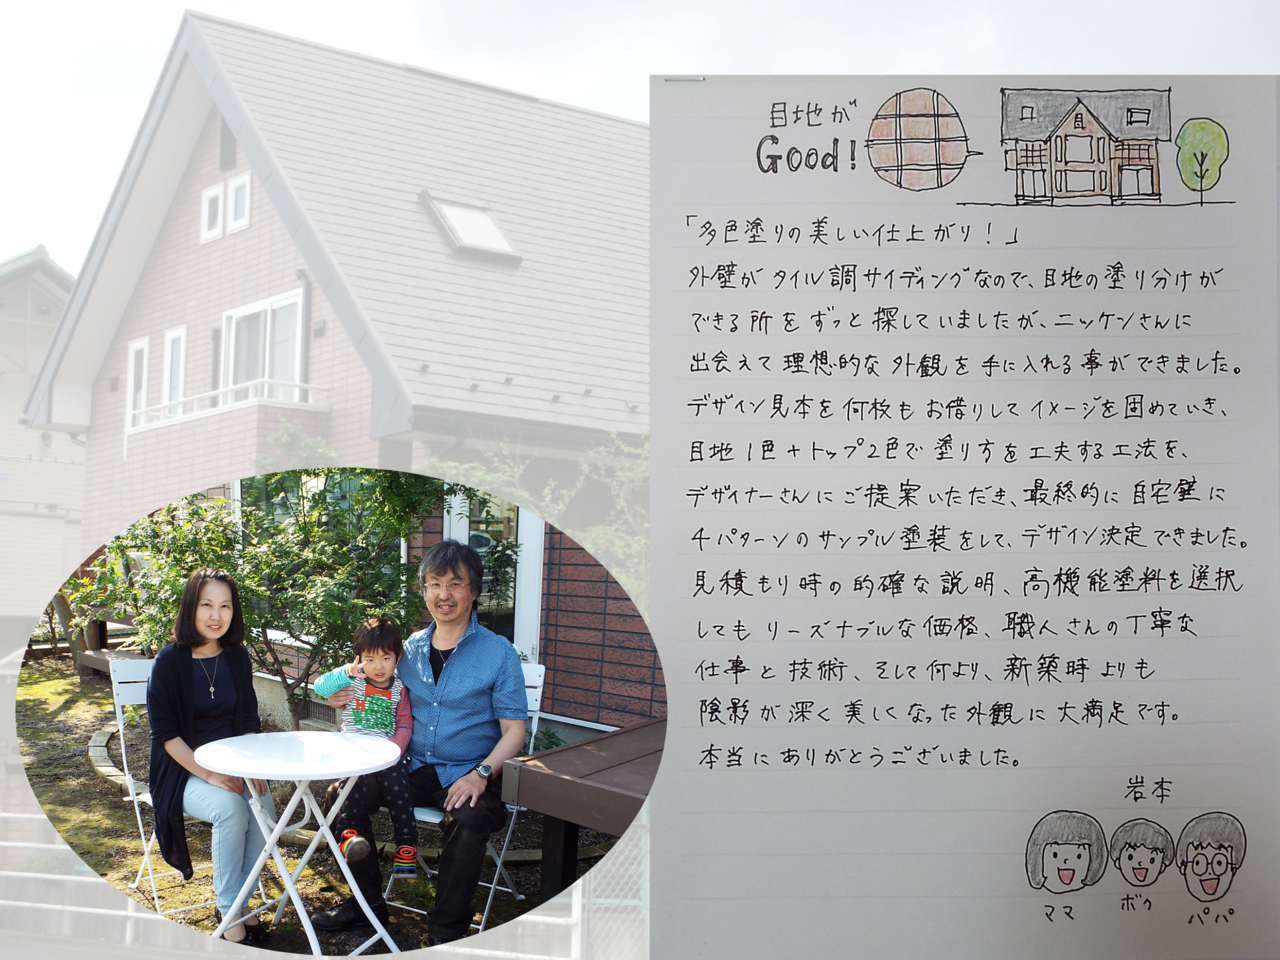 目地が
Good!
「多色塗りの美しい仕上がり！」
外壁がタイル調サイディングなので、目地の塗り分けが
できる所をずっと探していましたが、ニッケンさんに
出会えて理想的な外観を手に入れる事ができました。
デザイン見本を何枚もお借りしてイメージを固めていき、
目地1色+トップ2色で塗り方を工夫する工法を、
デザイナーさんにご提案いただき、最終的に自宅壁に
4パターンのサンプル塗装をして、デザイン決定できました。
見積もり時の的確な説明、高機能塗料を選択
してもリーズナブルな価格、職人さんの丁寧な
仕事と技術、そして何より、新築時よりも
陰影が深く美しくなった外観に大満足です。
本当にありがとうございました。
岩本
ママ
ボク
パパ